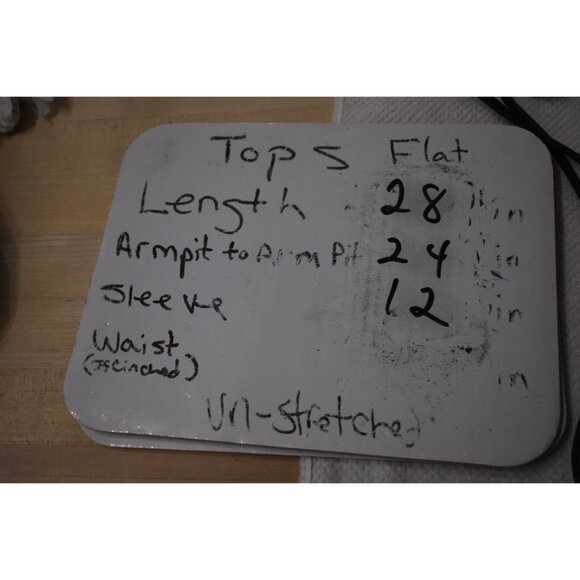 Tops Flat
Length 28 in
Armpit to Arm Pit 24 in
Sleeve 12 in
Waist in
(If Cinched)
Un-Stretched